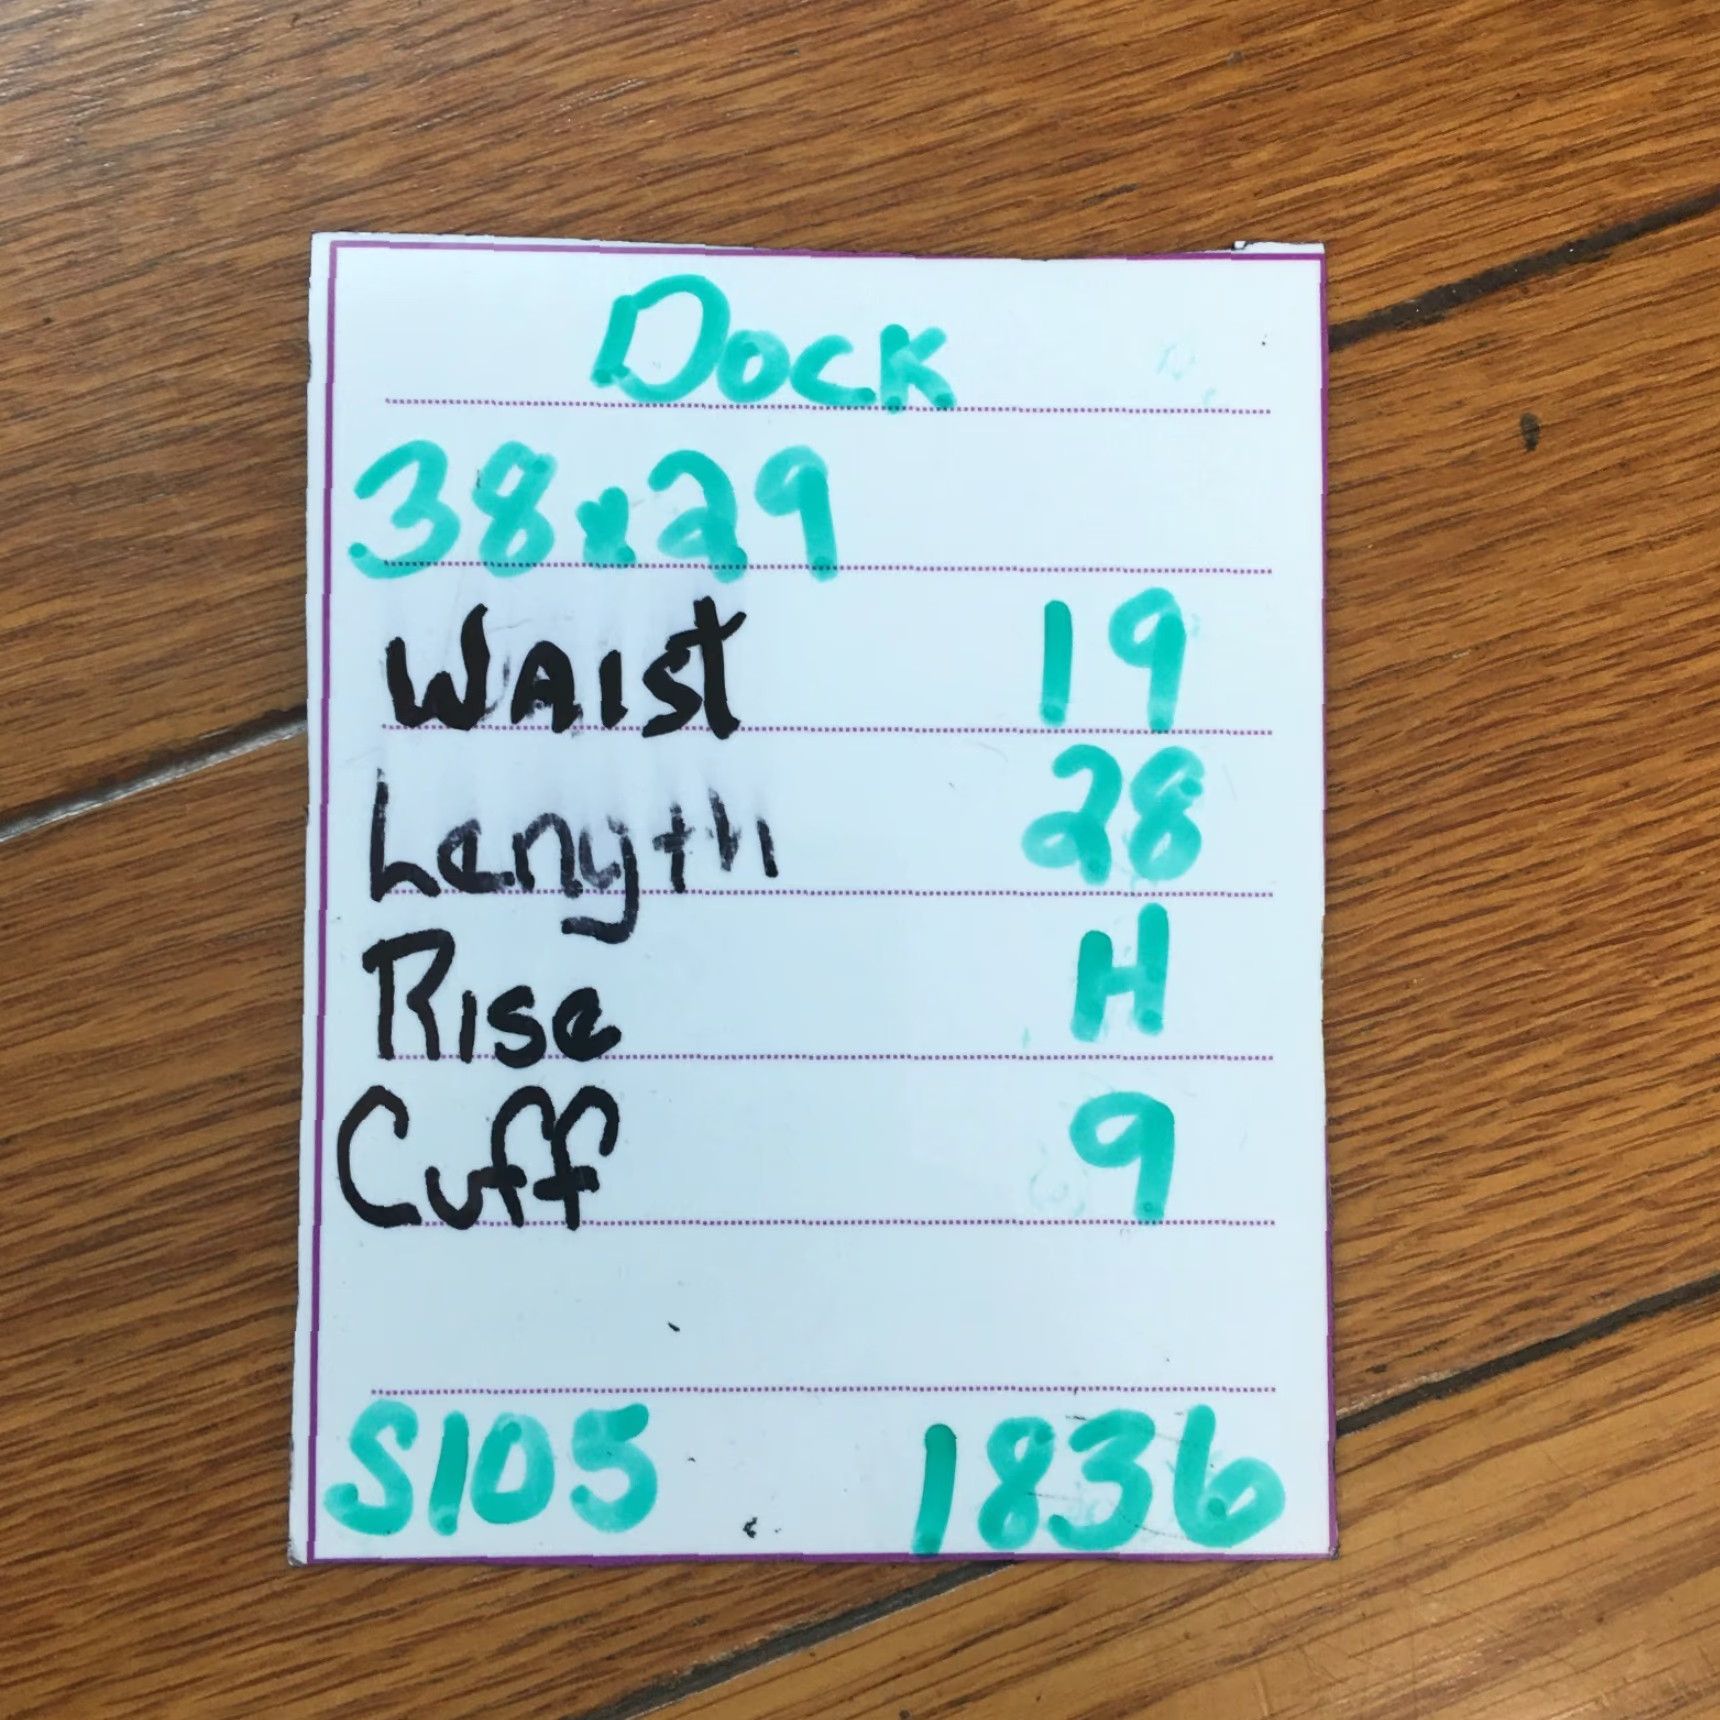 Dock
38x29
Waist 19
Length 28
Rise H
Cuff 9
S105 1836